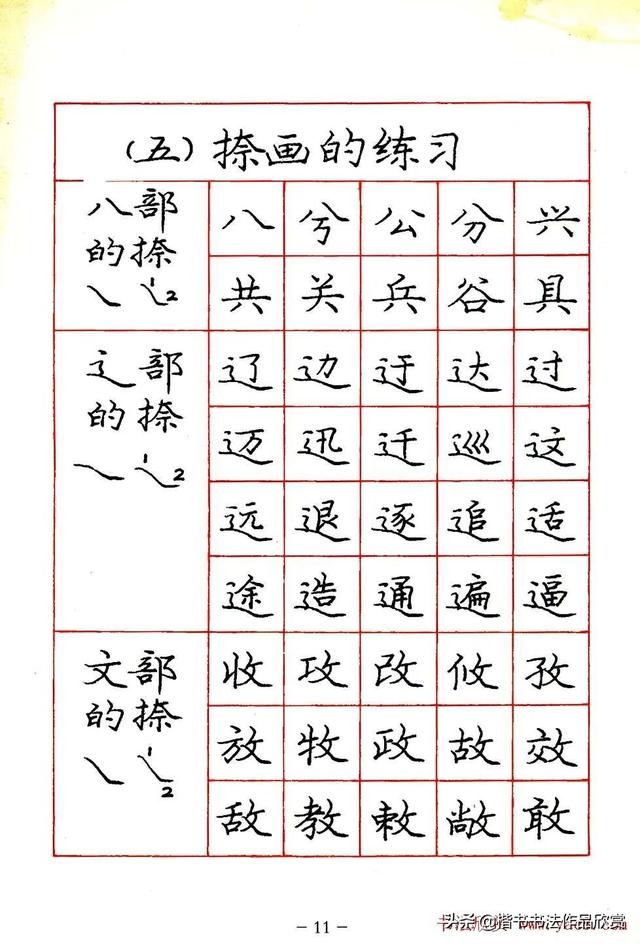 (五)捺画的练习
八部
的捺
㇏ 1 2
八 兮 公 分 兴
共 关 兵 谷 具
辶部
的捺
㇏ 1 2
辽 边 迂 达 过
迈 迅 迁 巡 这
远 退 逐 追 适
途 造 通 遍 逼
文部
的捺
㇏ 1 2
收 攻 改 攸 孜
放 牧 政 故 效
敌 教 敕 敞 敢
- 11 -
头条@楷书书法作品欣赏